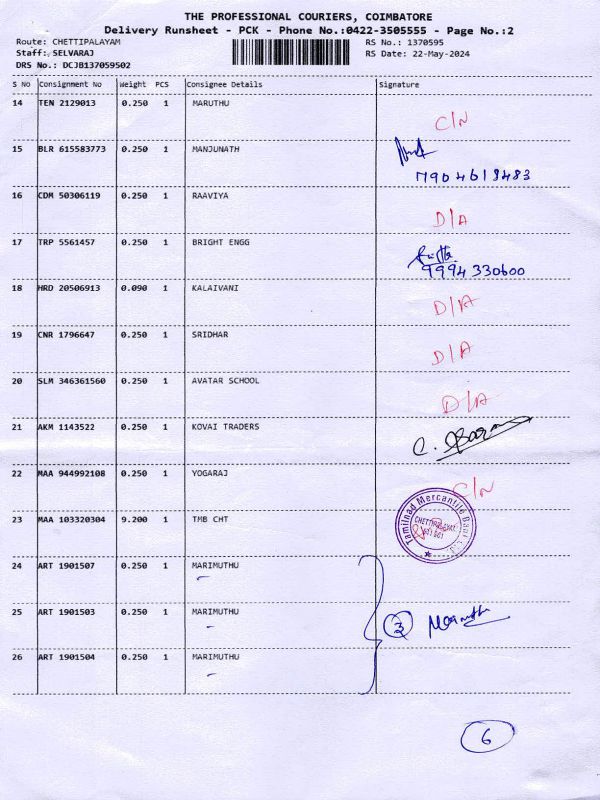 THE PROFESSIONAL COURIERS, COIMBATORE
Delivery Runsheet - PCK - Phone No.:0422-3505555 - Page No.:2
Route: CHETTIPALAYAM
RS No.: 1370595
Staff: SELVARAJ
RS Date: 22-May-2024
DRS No.: DCJB137059502
S No Consignment No Weight PCS Consignee Details Signature
14 TEN 2129013 0.250 1 MARUTHU
C/N
15 BLR 615583773 0.250 1 MANJUNATH
7904618483
16 CDM 50306119 0.250 1 RAAVIYA
D/A
17 TRP 5561457 0.250 1 BRIGHT ENGG
9994330600
18 HRD 20506913 0.090 1 KALAIVANI
D/A
19 CNR 1796647 0.250 1 SRIDHAR
D/A
20 SLM 346361560 0.250 1 AVATAR SCHOOL
D/A
21 AKM 1143522 0.250 1 KOVAI TRADERS
22 MAA 944992108 0.250 1 YOGARAJ
C/N
23 MAA 103320304 9.200 1 TMB CHT
Tamilnad Mercantile Bank Ltd
24 ART 1901507 0.250 1 MARIMUTHU
25 ART 1901503 0.250 1 MARIMUTHU
3
26 ART 1901504 0.250 1 MARIMUTHU
6